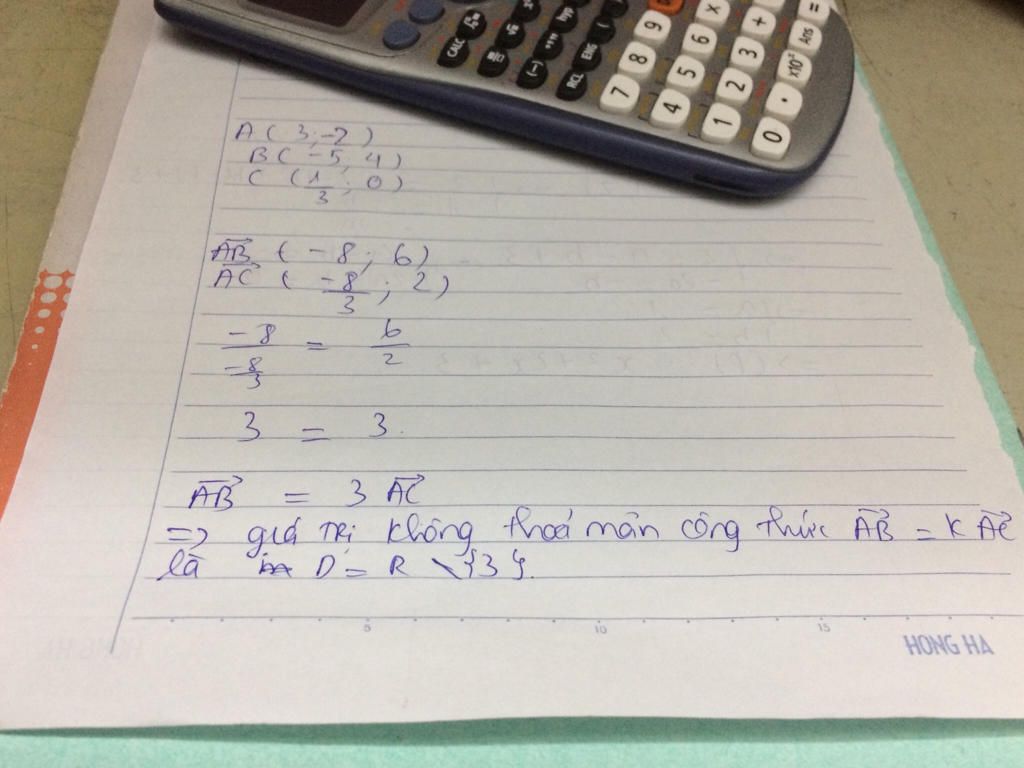 CALC
hyp
(-)
RCL
ENG
(
7
8
9
4
5
6
×
1
2
3
+
0
·
×10ˣ
Ans
=
A ( 3; -2 )
B ( -5; 4 )
C ( 1/3 ; 0 )
AB→ ( -8 ; 6)
AC→ ( -8/3 ; 2)
-8/(-8/3) = 6/2
3 = 3.
AB→ = 3 AC→
=> giá trị không thoả mãn công thức AB→ = K AC→
là D = R \ {3}.
5 10 15
HONG HA